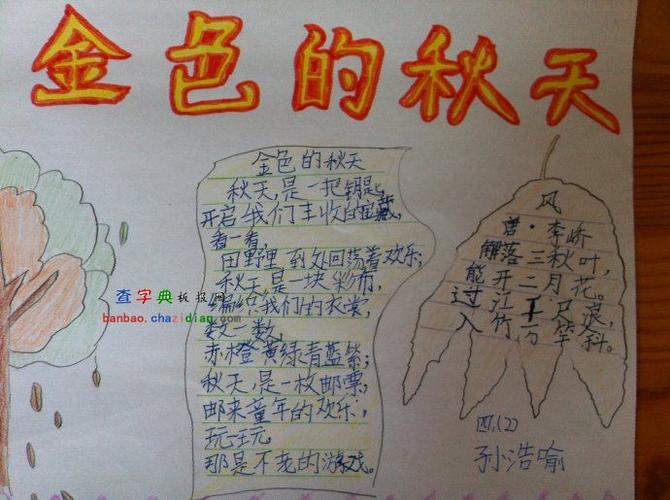 金色的秋天
金色的秋天
秋天,是一把钥匙,
开启我们丰收的宝藏,
看一看,
田野里 到处回荡着欢乐;
秋天是一块彩布,
编织我们的衣裳,
数一数,
赤橙黄绿青蓝紫;
秋天,是一枚邮票,
邮来童年的欢乐,
玩一玩,
那是不老的游戏。
风
曾·李峤
解落三秋叶,
能开二月花。
过江千尺退,
入竹万竿科。
四.(2)
孙浩喻
查字典板报网
banbao.chazidian.com